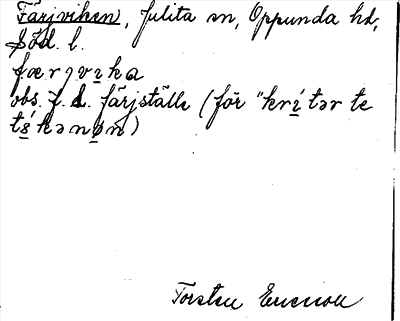 Färjviken, Julita sn, Oppunda hd,
Söd. l.
færjvika
obs. f. d. färjställe (för "krítər te
tśkənøn)
Torsten Ericsson